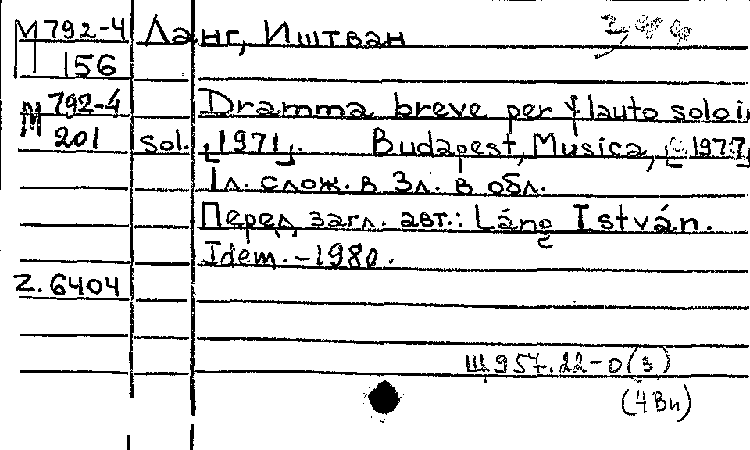 М 792-4 Ланг, Иштван
156
М 792-4 Dramma breve per flauto solo i,
201 sol. [1971]. Budapest, Musica, [c 1977]
1л. слож. в 3л. в обл.
Перед загл. авт.: Láng István.
Idem. - 1980.
Z. 6404
Щ 957.22-0(3)
(4Вн)